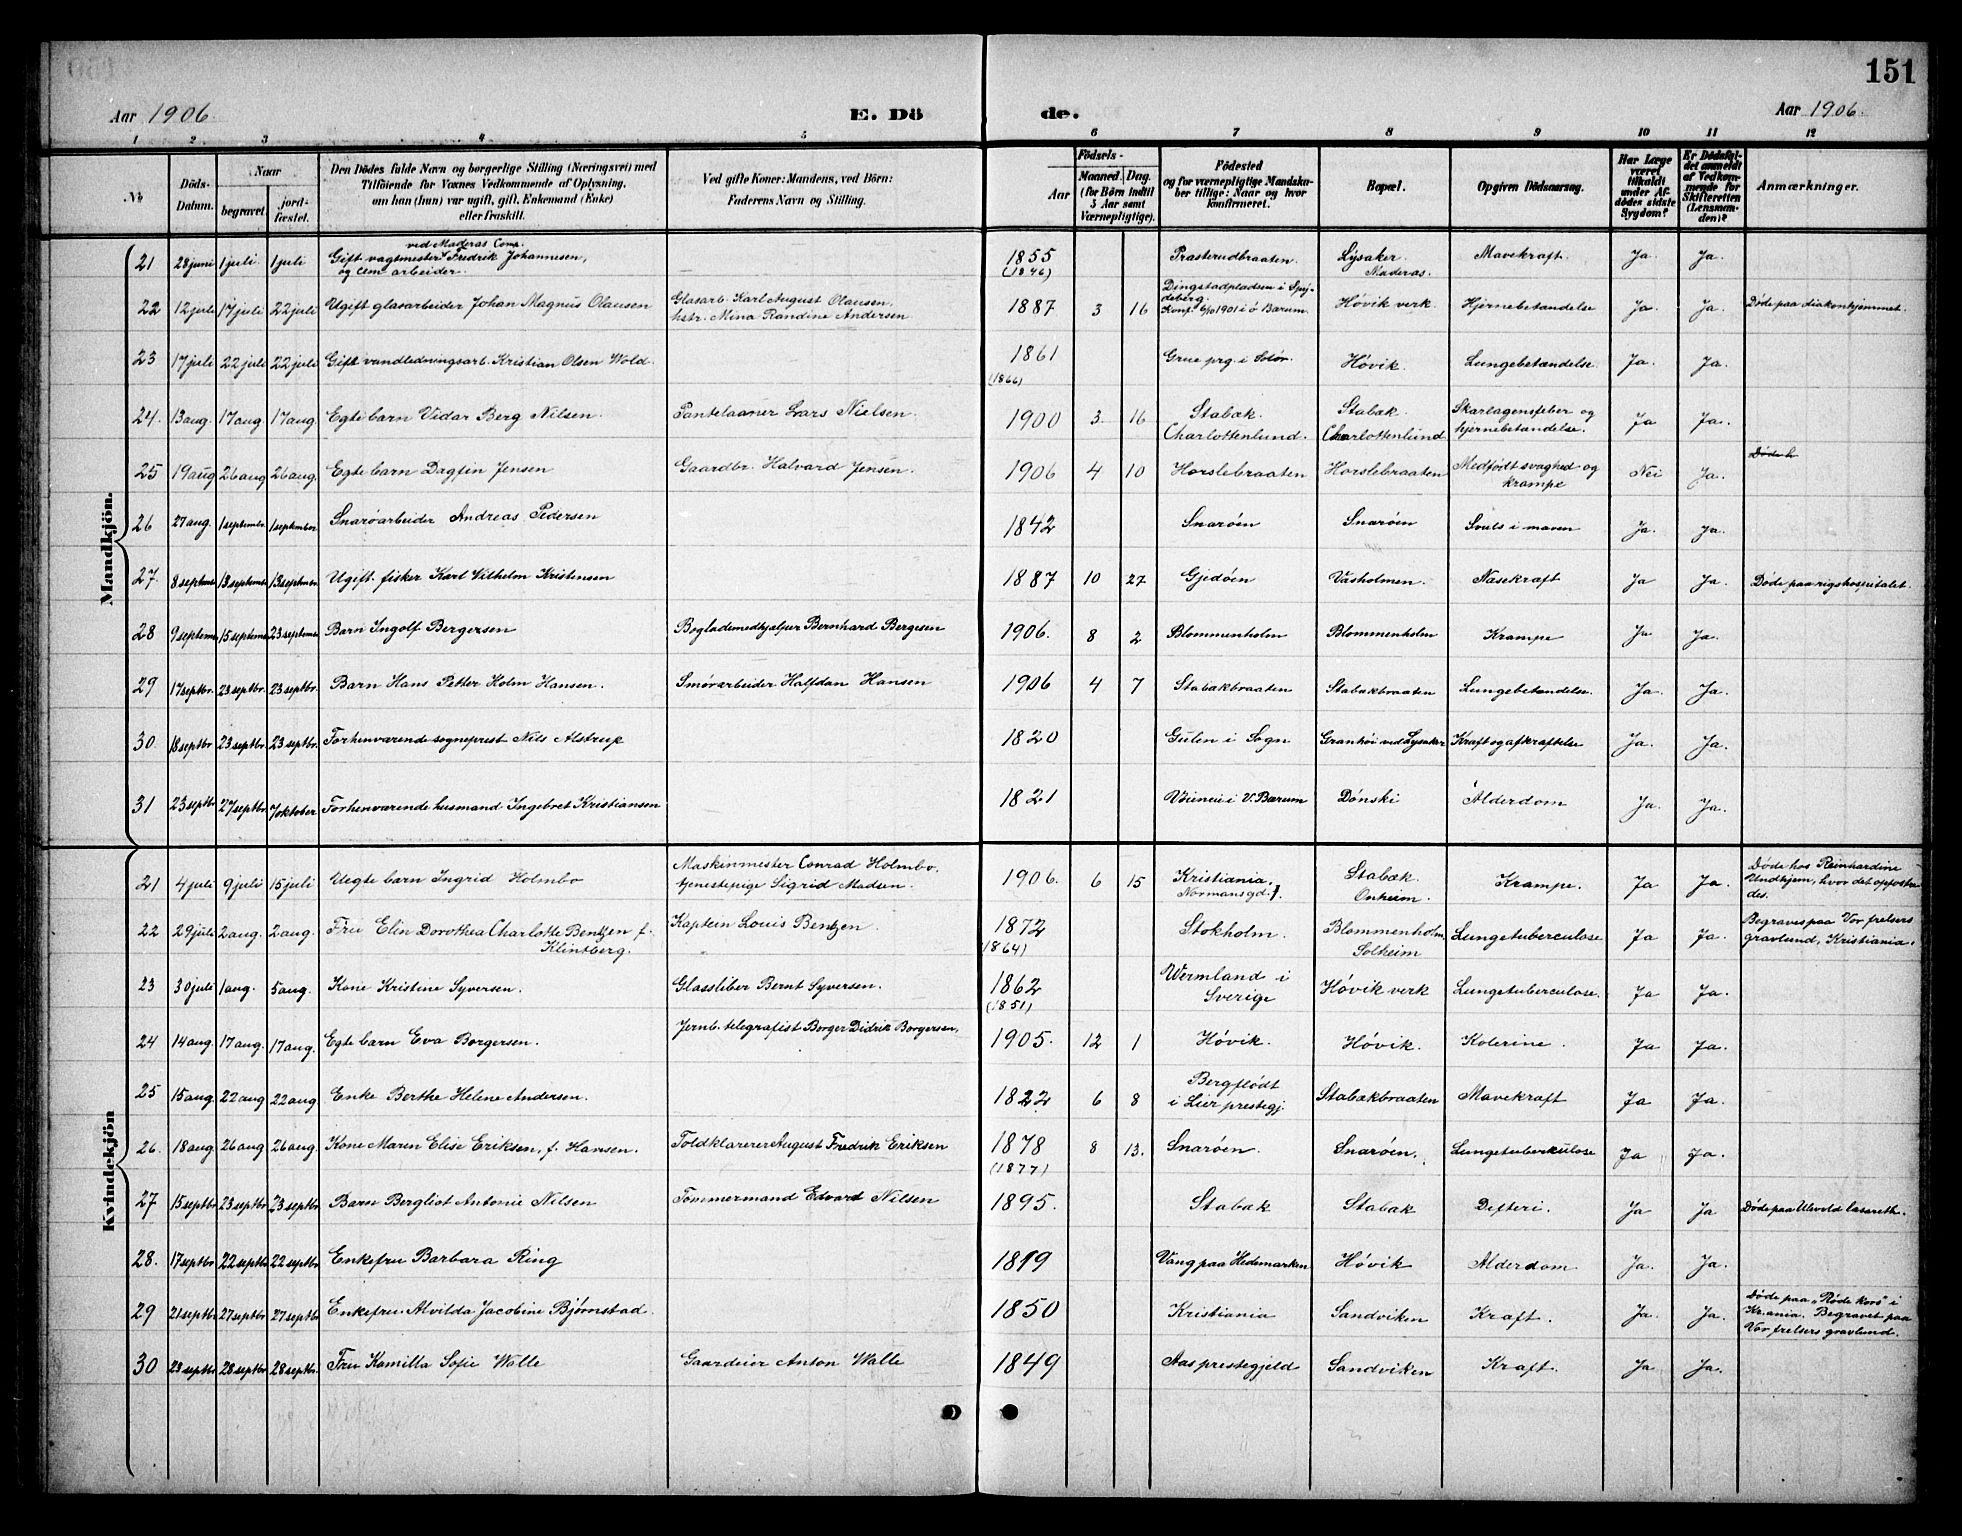 151
Aar 1906.
E. Döde.
Aar 1906.
1 2 3 4 5 6 7 8 9 10 11 12
№
Döds-Datum.
Naar
begravet.
jordfæstet.
Den Dödes fulde Navn og borgerlige Stilling (Næringsvei) med
Tilföiende for Voxnes Vedkommende af Oplysning,
om han (hun) var ugift, gift, Enkemand (Enke)
eller fraskilt.
Ved gifte Koner: Mandens, ved Börn:
Faderens Navn og Stilling.
Födsels-
Aar
Maaned. Dag.
(for Börn indtil
3 Aar samt
Værnepligtige).
Födested
og for værnepligtige Mandska-
ber tillige: Naar og hvor
konfirmeret.
Bopæl.
Opgiven Dödsaarsag.
Har Læge
været
tilkaldt
under Af-
dödes sidste
Sygdom?
Er Dödsfal-
det anmeldt
af Vedkom-
mende for
Skifteretten
(Lensman-
den)?
Anmærkninger.
Mandkjön.
21 28 juni 1 juli 1 juli Gift vagtmester ved Maderas Comp. Fredrik Johannesen, og cem. arbeider. 1855 (1846) Prasterudbraaten. Lysaker Maderas. Mavekraft. Ja. Ja.
22 12 juli 17 juli 22 juli Ugift glasarbeider Johan Magnus Olausen Glasarb. Karl August Olausen, hstr. Mina Randine Andersen 1887 3 16 Dingstadpladsen i Spydeberg. Konf. 6/10 1901 i ö Bærum. Hövik verk. Hjernebetændelse Ja. Ja. Døde paa diakonhjemmet.
23 17 juli 22 juli 22 juli Gift vandledningsarb. Kristian Olsen Wold. 1861 (1866) Grue prg. i Solør. Høvik. Lungebetændelse. Ja. Ja.
24. 13 aug. 17 aug. 17 aug. Egte barn Vidar Berg Nilsen. Pantelaaner Lars Nielsen. 1900 3 16 Stabæk. Charlottenlund. Stabæk. Charlottenlund Skarlagensfeber og hjernebetændelse. Ja Ja.
25 19 aug 26 aug 26 aug. Egte barn Dagfin Jensen Gaardbr. Halvard Jensen. 1906 4 10 Horslebraaten Horslebraaten Medfödt svaghed og krampe Nei Ja. Døde h
26 27 aug. 1 septembr. 1 septembr. Snarøarbeider Andreas Pedersen 1842 Snarøen Snarøen Svuls i maven Ja. Ja.
27. 8 septembr 13 septembr 13 septembr. Ugift fisker Karl Wilhelm Kristensen 1887 10 27 Gjedøen Vasholmen. Næsekraft Ja Ja. Døde paa rigshospitalet.
28 9 septembr 15 septembr 23 septembr Barn Ingolf Bergersen Boglademedhjælper Bernhard Bergesen 1906. 8 2 Blommenholm Blommenholm Krampe Ja Ja.
29 17 septbr. 23 septbr. 23 septbr. Barn Hans Petter Holm Hansen. Smørarbeider Halfdan Hansen 1906 4 7 Stabækbraaten Stabækbraaten Lungebetændelse. Ja. Ja.
30. 18 septbr. 23 septbr. 23 septbr. Forhenværende sogneprest Nils Alstrup 1820 Gulen i Sogn Granhöi ved Lysaker Kraft og afkræftelse Ja. Ja.
31 23 septbr 27 septbr 7 oktober. Forhenværende husmand Ingebret Kristiansen 1821 Vöienei i V. Bærum Dønski Alderdom Ja. Ja.
Kvindekjön
21 4 juli 9 juli 15 juli Uegte barn Ingrid Holmbo Maskinmester Conrad Holmbo, tjenestepige Sigrid Madsen. 1906. 6 15 Kristiania, Normansgd. 7. Stabæk. Onheim. Krampe. Ja Ja. Døde hos Reinhardine Undhjem, hvor det opfostredes.
22 29 juli 2 aug. 2 aug. Fru Elin Dorothea Charlotte Bentzen f. Klintberg. Kaptein Louis Bentzen. 1872 (1864) Stokholm. Blommenholm, Solheim Lungetuberculose Ja Ja. Begraves paa Vor frelsers gravlund, Kristiania.
23 30 juli 1 aug. 5 aug. Kone Kristine Syversen. Glassliber Bernt Syversen. 1862 (1851) Wermland i Sverige Høvik verk Lungetuberculose. Ja Ja.
24 14 aug. 17 aug. 17 aug. Egte barn Eva Borgersen. Jernb. telegrafist Borger Didrik Borgersen, 1905. 12 1 Høvik. Høvik. Kolerine. Ja Ja.
25 15 aug. 22 aug 22 aug. Enke Berthe Helene Andersen. 1822 6 8 Bergflødt i Lier prestegj. Stabækbraaten Mavekraft Ja Ja.
26. 18 aug. 26 aug 26 aug. Kone Maren Elise Eriksen, f. Hansen. Toldklarerer August Fredrik Eriksen 1878 (1877) 8 13. Snarøen. Snarøen. Lungetuberkulose Ja Ja.
27 15 septbr 23 septbr 23 septbr Barn Bergliot Antonie Nilsen Tømmermand Edvard Nilsen 1895. Stabæk Stabæk Difteri. Ja Ja Døde paa Ulevold lasareth.
28. 17 septbr 22 septbr 22 septbr Enkefru Barbara Ring 1819 Vang paa Hedemarken Høvik Alderdom. Ja. Ja.
29 21 septbr 27 septbr 27 septbr Enkefru Alvilda Jacobine Bjørnstad. 1850 Kristiania Sandviken Kraft. Ja. Ja. Døde paa „Røde kors“ i Kr.ania. Begravet paa Vor frelsers gravlund.
30 23 septbr 28 septbr 28 septbr Fru Kamilla Sofie Walle Gaardeier Anton Walle 1849 Aas prestegjeld Sandviken Kraft. Ja Ja.